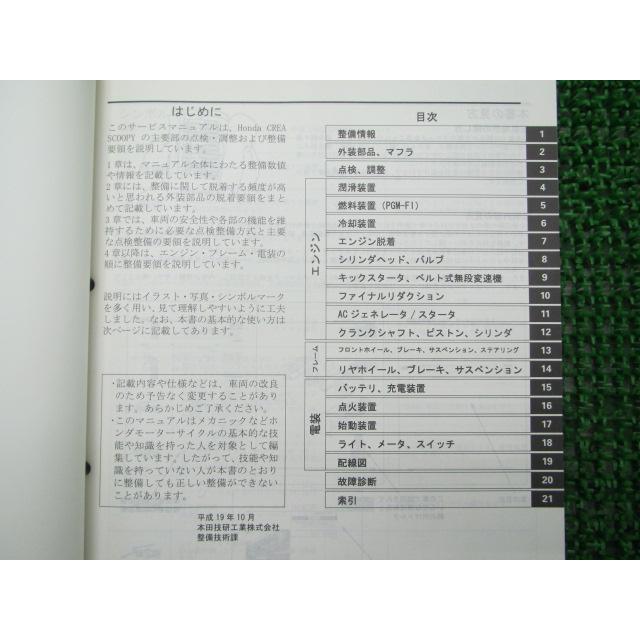 はじめに
このサービスマニュアルは、Honda CREA
SCOOPY の主要部の点検・調整および整備
要領を説明しています。
1章は、マニュアル全体にわたる整備数値
や情報を記載しています。
2章には、整備に関して脱着する頻度が高
いと思われる外装部品の脱着要領をまと
めて記載しています。
3章では、車両の安全性や各部の機能を維
持するために必要な点検整備方式と主要
な点検整備の要領を説明しています。
4章以降は、エンジン・フレーム・電装の
順に整備要領を説明しています。
説明にはイラスト・写真・シンボルマーク
を多く用い、見て理解しやすいように工夫
しました。なお、本書の基本的な使い方は
次ページに記載してあります。
・記載内容や仕様などは、車両の改良
のため予告なく変更することがあり
ます。あらかじめご了承ください。
・このマニュアルはメカニックなどホ
ンダモーターサイクルの基本的な技
能や知識を持った人を対象として編
集しています。したがって、技能や知
識を持っていない人が本書のとおり
に整備しても正しい整備ができない
ことがあります。
平成19年10月
本田技研工業株式会社
整備技術課
目次
整備情報 1
外装部品、マフラ 2
点検、調整 3
エンジン
潤滑装置 4
燃料装置(PGM-FI) 5
冷却装置 6
エンジン脱着 7
シリンダヘッド、バルブ 8
キックスタータ、ベルト式無段変速機 9
ファイナルリダクション 10
ACジェネレータ/スタータ 11
クランクシャフト、ピストン、シリンダ 12
フレーム
フロントホイール、ブレーキ、サスペンション、ステアリング 13
リヤホイール、ブレーキ、サスペンション 14
電装
バッテリ、充電装置 15
点火装置 16
始動装置 17
ライト、メータ、スイッチ 18
配線図 19
故障診断 20
索引 21